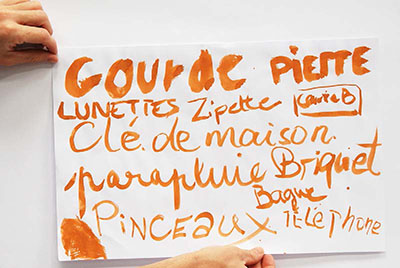 Gourde PIERRE
LUNETTES Zipette Carte B
Clé de maison
parapluie Briquet
Bague
PINCEAUX TÉLÉPhone